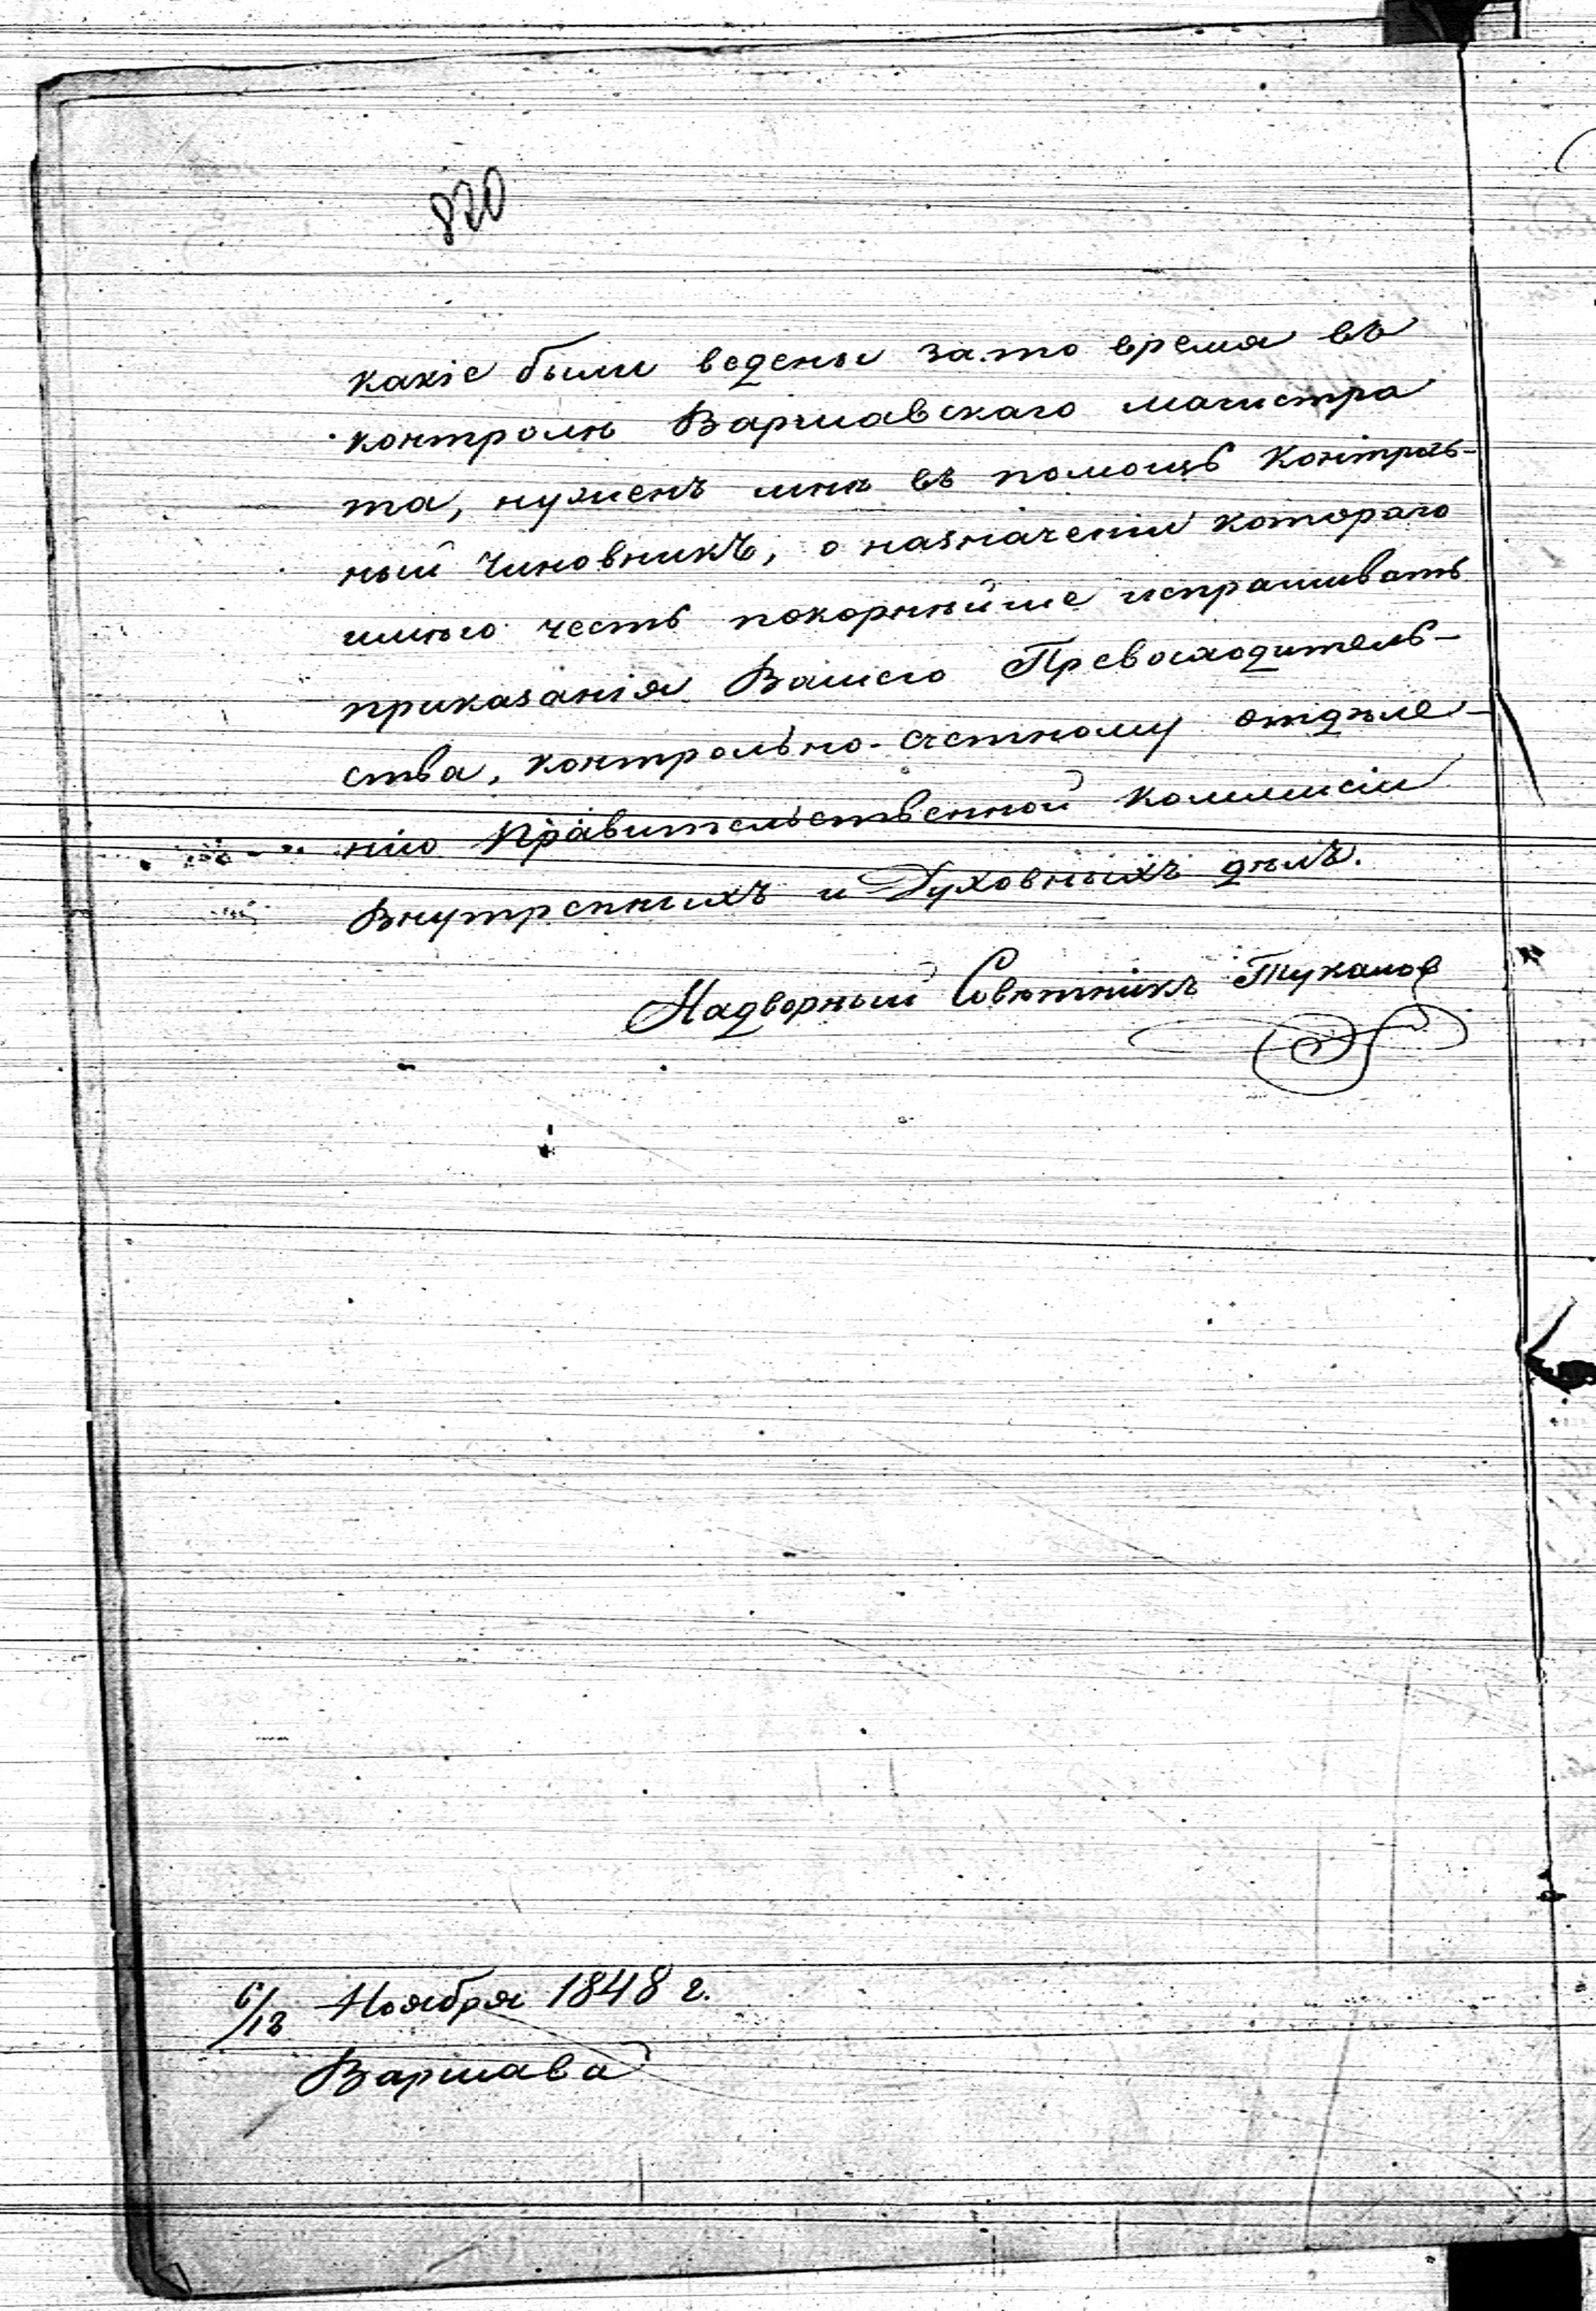 820
какіе были ведены за то время въ
контролѣ Варшавскаго магистра
та, нуженъ мнѣ въ помощь контроль-
ный чиновникъ, о назначеніи котораго
имѣю честь покорнѣйше испрашивать
приказанія Вашего Превосходитель-
ства, контрольно-счетному отдѣле-
нію Правительственной Коммисіи
Внутреннихъ и Духовныхъ дѣлъ.
Надворный Совѣтникъ Тукалов
6/18 Ноября 1848 г.
Варшава